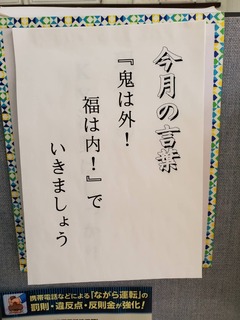 今月の言葉
『鬼は外!
福は内!』で
いきましょう
携帯電話などによる「ながら運転」の
罰則・違反点・反則金が強化!